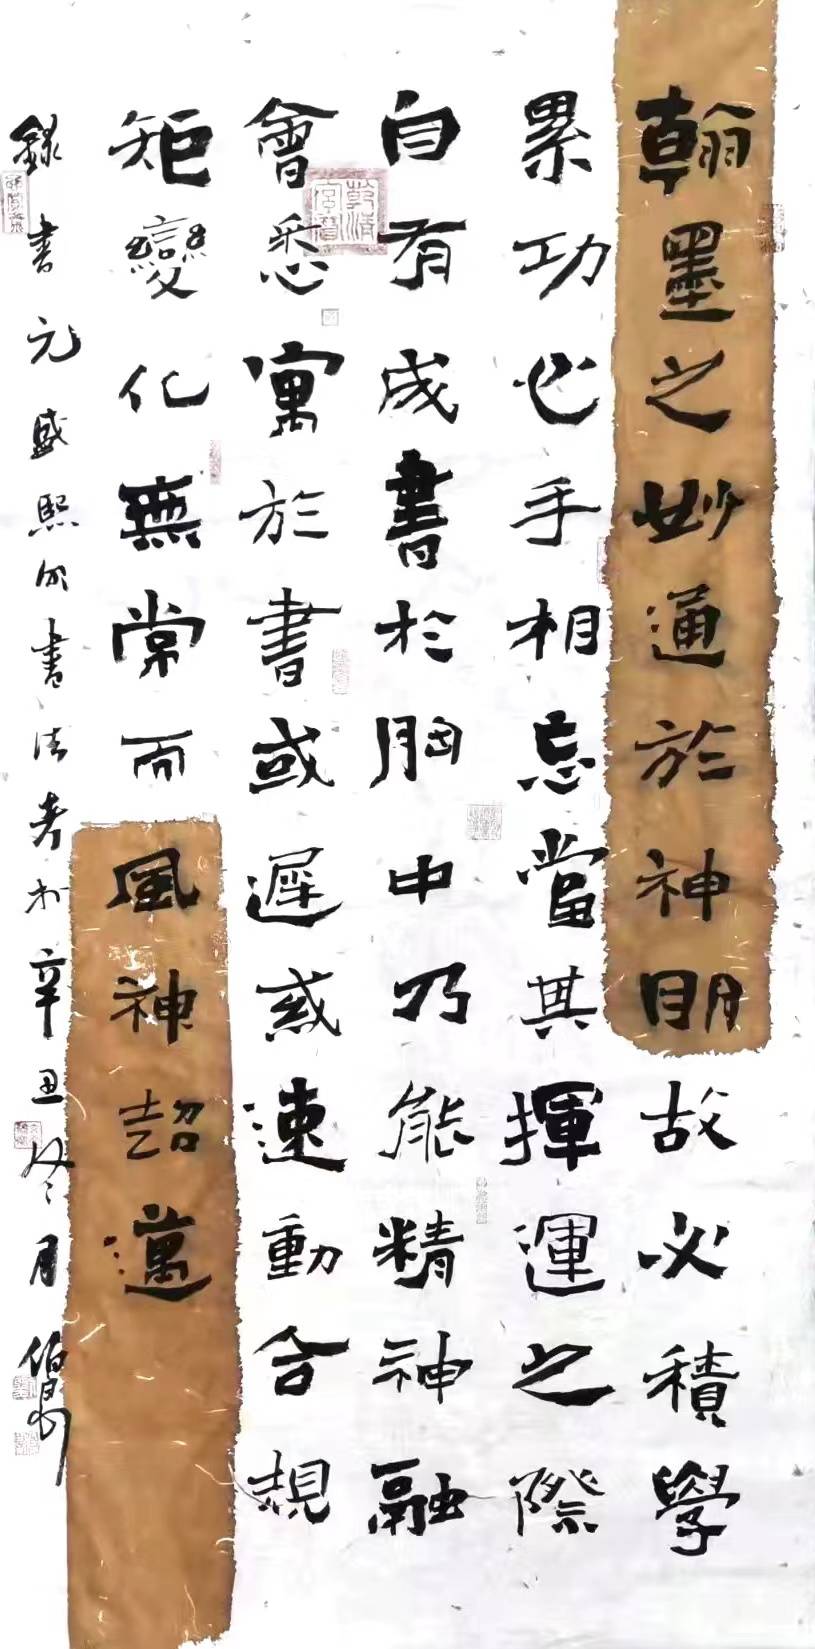 翰墨之妙通於神明故必積學
累功心手相忘當其揮運之際
自有成書於胸中乃能精神融
會悉寓於書或遲或速動合規
矩變化無常而風神超邁
錄書元盛熙明書法考於辛丑冬月
乾清宮寶